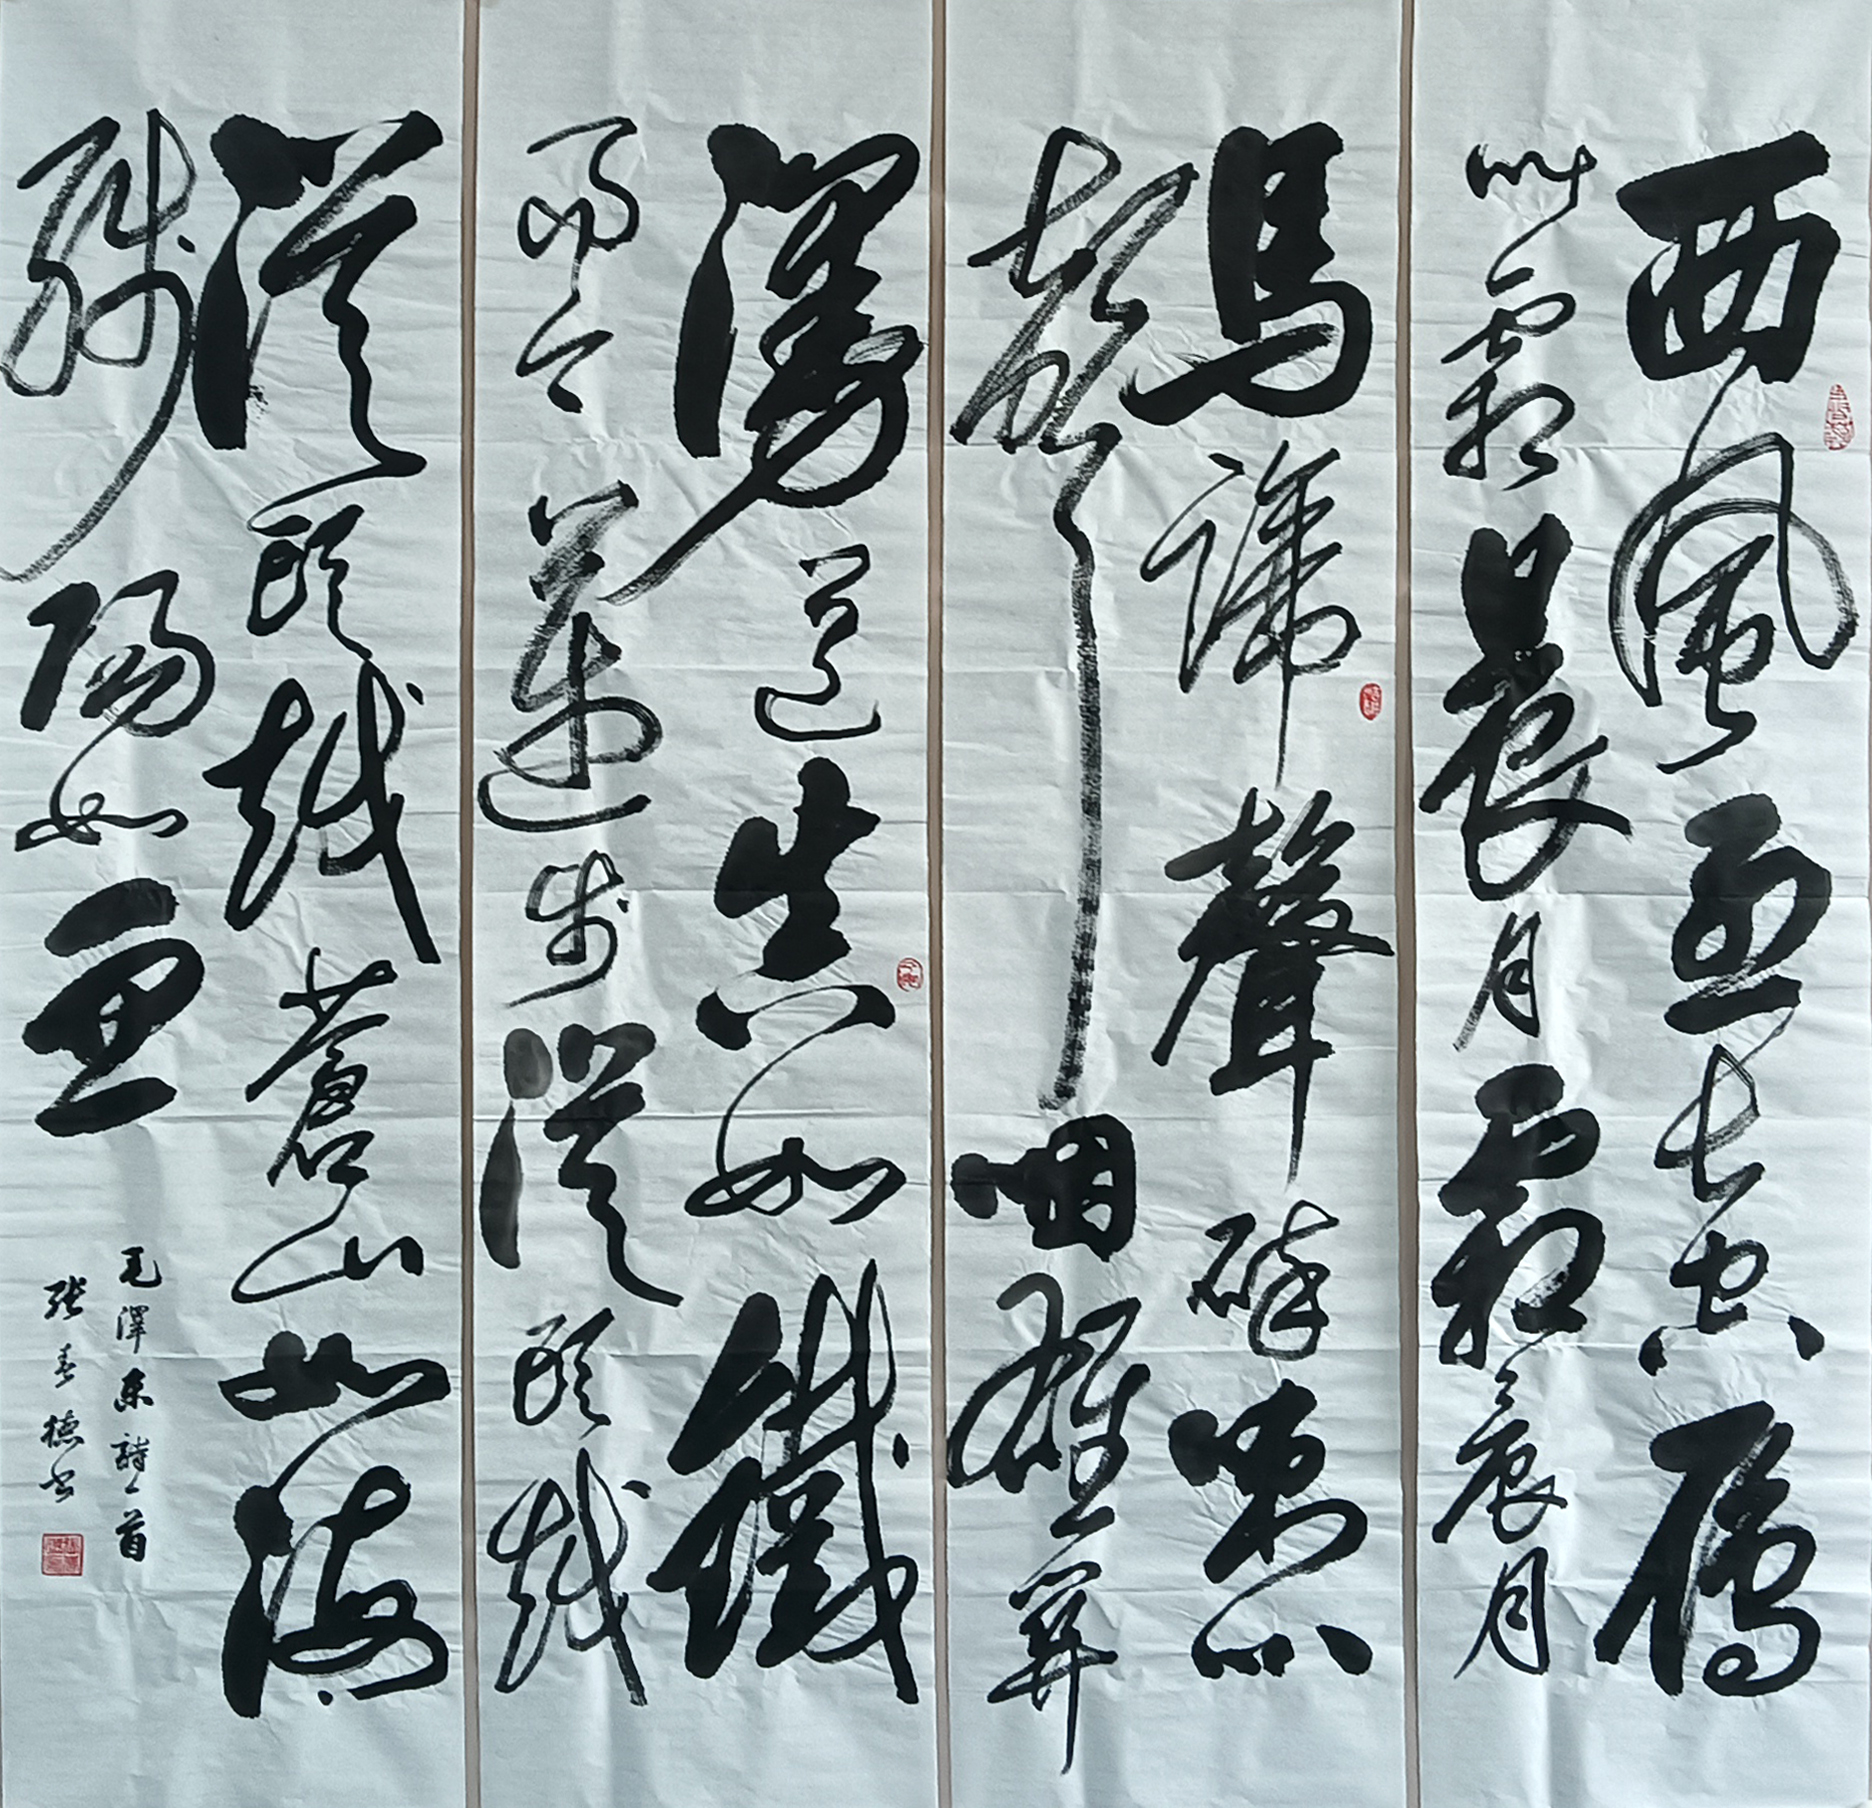 西風烈長空雁
叫霜晨月霜晨月
馬蹄聲碎喇叭
聲咽雄關
漫道真如鐵
而今邁步從頭越
從頭越蒼山如海
殘陽如血
毛澤东詩一首
張春德书